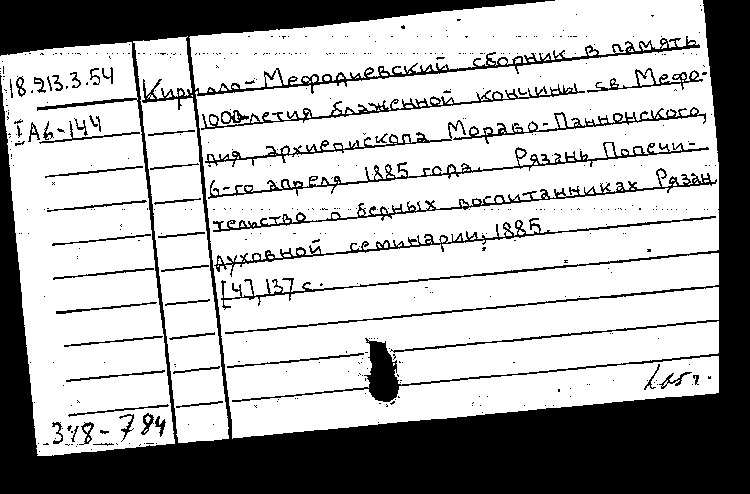 18.213.3.54
IA6-144
Кирилло-Мефодиевский сборник в память
1000-летия блаженной кончины св. Мефо-
дия, архиепископа Мораво-Паннонского,
6-го апреля 1885 года. Рязань, Попечи-
тельство о бедных воспитанниках Рязан
духовной семинарии, 1885.
[4], 137 с.
348-784